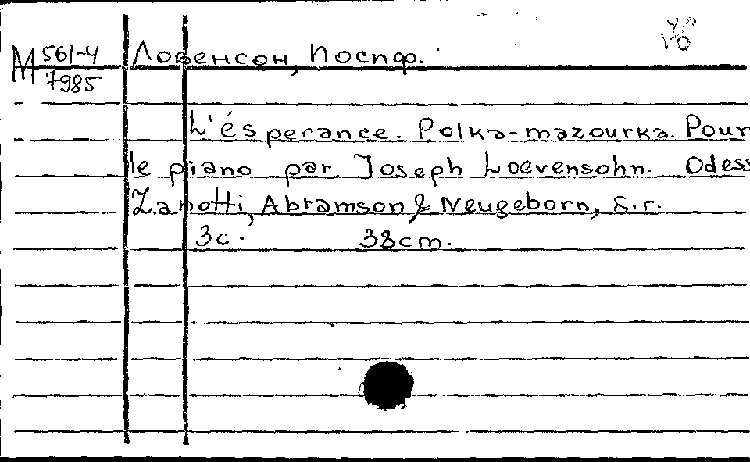 М 561-4
7985
Ловенсон, Йосиф.
L'ésperance. Polka-mazourka. Pour
le piano par Joseph Loevensohn. Odess
Zanotti, Abramson & Neugeborn, s.r.
3c. 38cm.